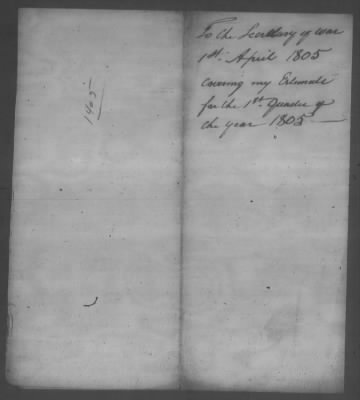 To the Secretary of war
1st. April 1805
Covering my Estimate
for the 1st. Quarter of
the year 1805
1405